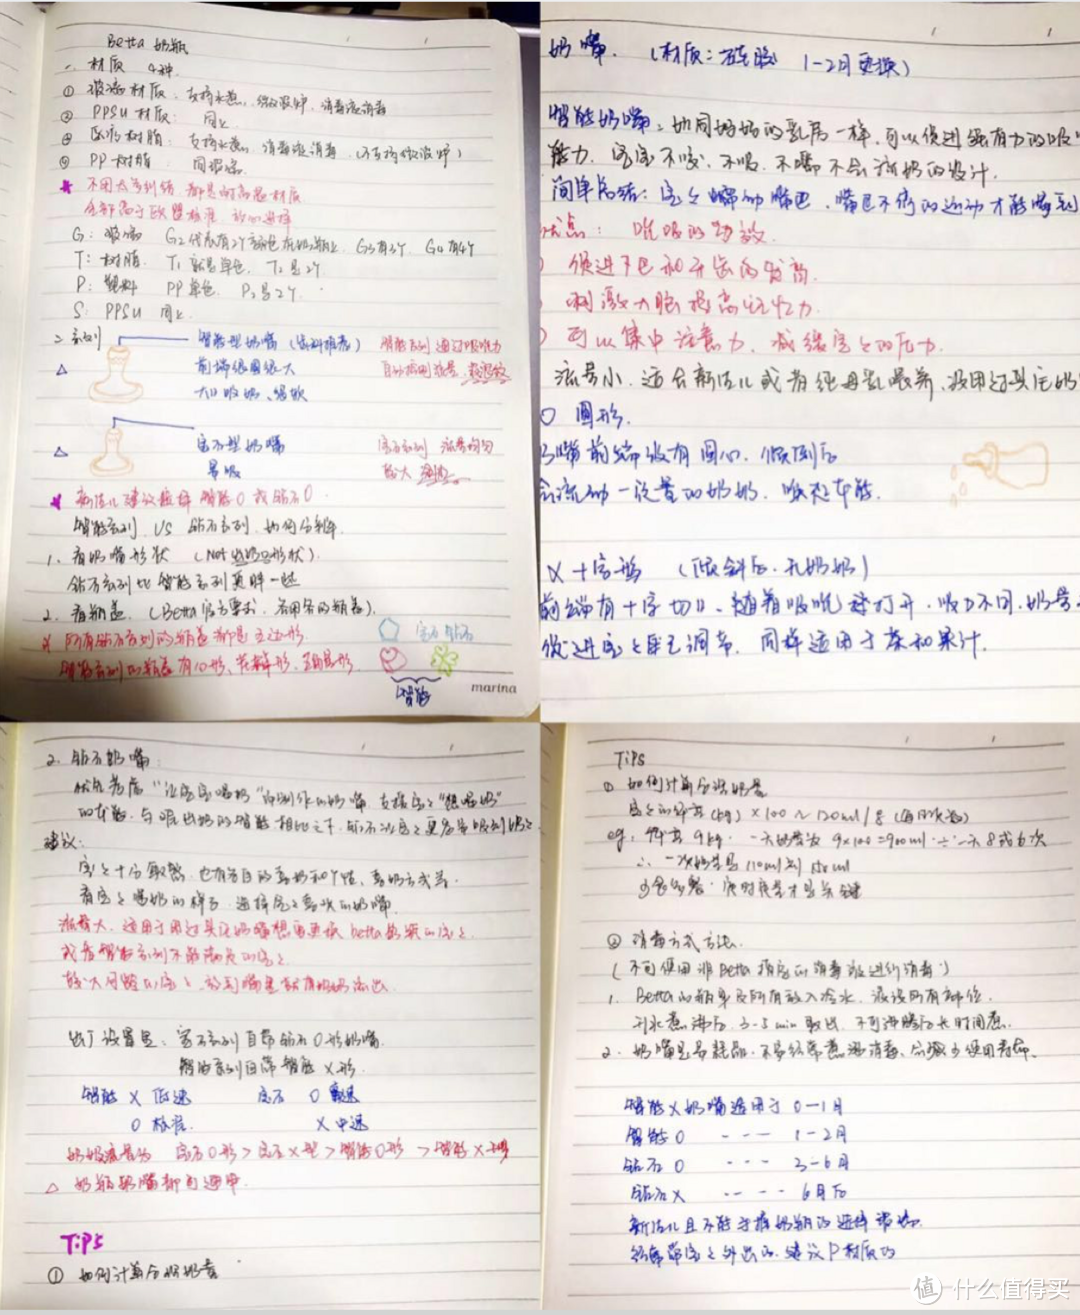 Betta 奶瓶
一、材质 4种.
① 玻璃材质：支持水煮、微波炉、消毒液消毒
② PPSU材质： 同上
③ 树脂：支持水煮、消毒液消毒、(不支持微波炉)
④ PP树脂： 同
都是耐高温材质
全部高于欧盟标准 放心选择
G：玻璃 G2代表有2个颜色在奶瓶上. G3有3个. G4有4个
T：树脂. T1就是单色. T2是2个
P：塑料 PP单色. P2是2个.
S：PPSU 同上.
二、系列
智能型奶嘴
智能系列 通过吸吮力
前端很圆很大
自动控制流量
大口吸奶、
宝石型奶嘴
宝石系列 流量均匀
易吸
较大
新生儿建议选择 智能O 或 钻石O
智能系列 VS 钻石系列. 如何分辨.
1. 看奶嘴形状 (Not 形状).
钻石系列比智能系列更胖一些
2. 看瓶盖. (Betta官方 的瓶盖).
所有钻石系列的瓶盖都是五边形.
宝石 钻石
智能系列的瓶盖有心形、花瓣形、
智能
marina
奶嘴. (材质：硅胶 1-2月更换)
智能奶嘴：如同妈妈的乳房一样.可以促进强有力的吸
能力. 宝宝不咬、不吸、不嚼不会 奶的设计.
简单总结：宝宝 嘴巴. 嘴巴不停的运动才能
优点：
促进下巴和牙齿的发育.
刺激大脑提高记忆力.
可以集中注意力. 减缓宝宝的压力.
流量小. 适合新生儿或者纯母乳喂养、没用过其它奶
O 圆形.
奶嘴前端设有圆心. 倾倒后
会流动一定量的奶奶.
X 十字形 (倾斜后.无奶奶)
前端有十字切口、随着吸吮被打开. 吸力不同.奶量
促进宝宝自己调节. 同样适用于茶和果汁.
2. 钻石奶嘴：
优先考虑"让宝宝喝奶"而制作的奶嘴. 支持宝宝"想喝奶"
的本能. 与 的智能相比之下. 钻石让宝宝更容易吸到奶
建议：
宝宝十分敏感. 也有各自的喜好和个性. 喜好方式等.
看宝宝喝奶的样子. 选择宝宝喜欢的奶嘴.
流量大. 适用于用过其它奶嘴想要更换betta奶嘴的宝宝.
或者智能系列不能满足的宝宝.
出厂设置是：宝石系列自带钻石O形奶嘴.
智能系列自带智能X形.
智能 X 低速 宝石 O
O 标准. X 中速
奶奶流量为 宝石O形 > 宝石X型 > 智能O形 > 智能X
△ 奶瓶奶嘴都可通用.
TiPS
① 如何计算合理奶量
TiPS
① 如何计算合理奶量
宝宝的体重(kg) × 100 ~ 120ml/
eg：体重 9kg. 一天奶量为 9×100=900ml ÷ 一天8或6次
∴ 一次奶量是110ml到150ml
② 消毒方式方法.
(不可使用非Betta指定的消毒液进行消毒)
1. Betta的瓶身及所有放入冷水. 浸没所有部位.
开水煮沸后. 3-5min取出. 不可沸腾后长时间煮.
2. 奶嘴是易耗品. 不易经常煮沸消毒. 会减少使用寿命.
智能X奶嘴适用于 0-1月
智能O - - - 1-2月
钻石O - - - 3-6月
钻石X - - - - 6月后
新生儿且不能 奶瓶的选择玻璃.
经常带宝宝外出的. 建议P材质的
值 什么值得买